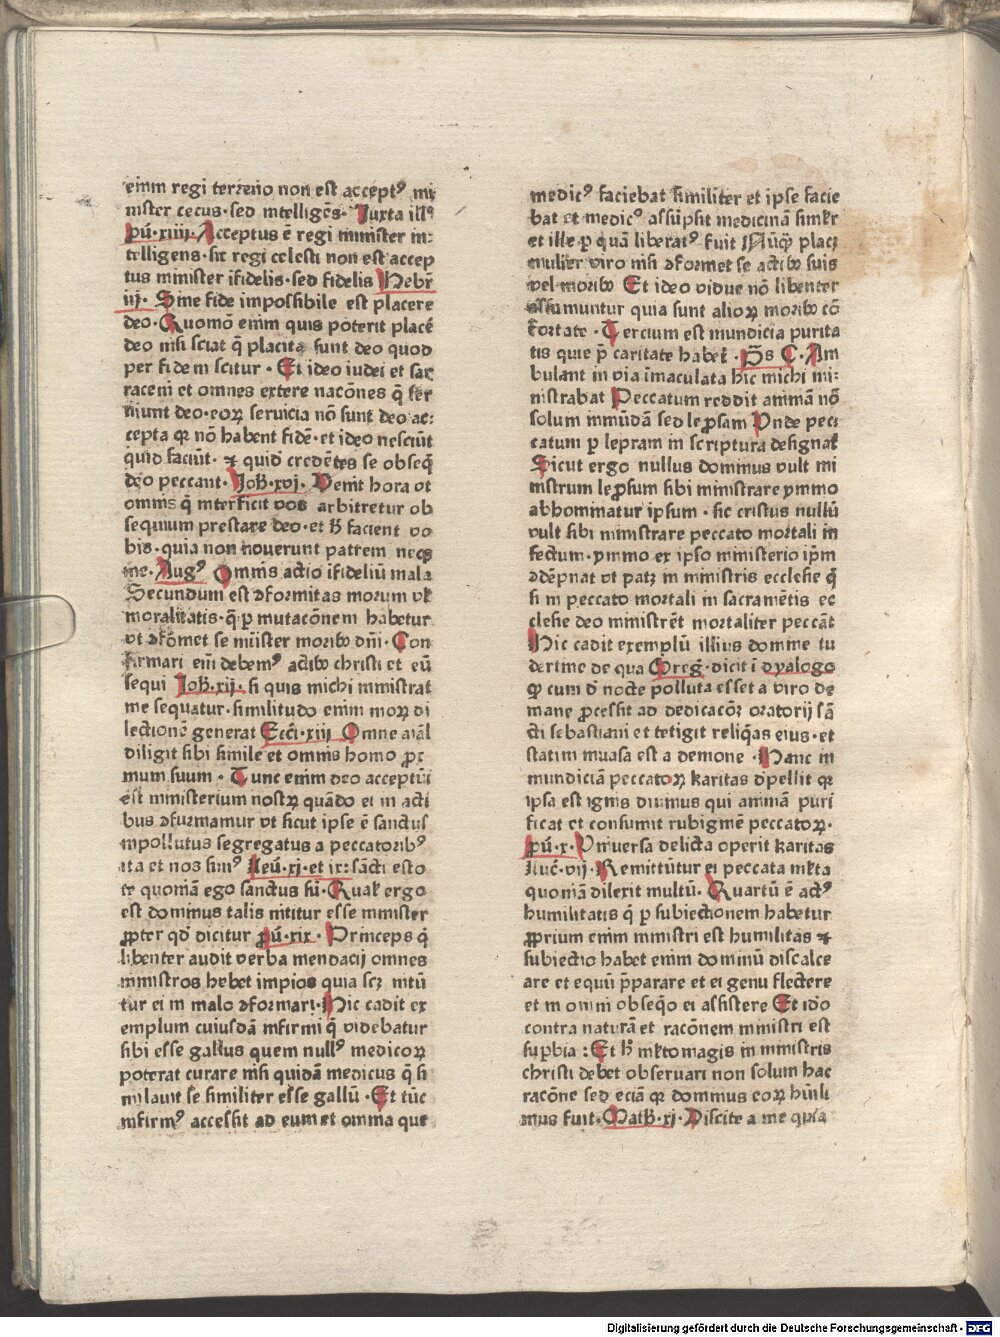 enim regi terreno non est accept⁹ mi
nister cecus · sed intelligēs · Iuxta ill⁹
pū · xiiii · Acceptus ē regi minister in:
telligens · sic regi celesti non est accep
tus minister īfidelis · sed fidelis Hebr̄
iij · Sine fide impossibile est placere
deo · Quomō enim quis poterit placē
deo nisi sciat q̄ placita sunt deo quod
per fidem scitur · Et ideo iudei et sar
raceni et omnes extere nacōnes q̄ ser
uiunt deo · eoꝝ seruicia nō sunt deo ac:
cepta qꝛ nō habent fidē · et ideo nesciūt
quid faciūt · ⁊ quid credētes se obseq̄
deo peccant · Joh̄ · xvj · Venit hora vt
omnis q̄ interficit vos arbitretur ob
sequium prestare deo · et h̄ facient vo
bis · quia non nouerunt patrem neqꝫ
me · Aug⁹ Omnis actio īfideliū mala
Secundum est ꝯformitas morum vl̄
moralitatis · q̄ ꝑ mutacōnem habetur
vt ꝯfōmet se mīister moribꝫ dn̄i · Con
firmari em̄ debem⁹ actibꝫ christi et eū
sequi Joh̄ · xij · si quis michi ministrat
me sequatur · similitudo enim moꝝ di
lectionē generat Eccī · xiij Omne aīal
diligit sibi simile et omnis homo ꝓx
imum suum · Tunc enim deo acceptū
est ministerium nostꝝ quādo ei in acti
bus ꝯfurmamur vt sicut ipse ē sanctus
inpollutus segregatus a peccatorib⁹
ita et nos sim⁹ Leū · xj · et ix: sācti esto
te quoniā ego sanctus sū · Qual̄ ergo
est dominus talis nītitur esse minister
ꝓpter qd̄ dicitur ꝓū · xix · Princeps q̄
libenter audit verba mendacij omnes
ministros hebet impios quia scꝫ nitū
tur ei in malo ꝯformari · Hic cadit ex
emplum cuiusdā infirmi q̄ videbatur
sibi esse gallus quem null⁹ medicoꝝ
poterat curare nisi quidā medicus q̄ si
milauit se similiter esse gallū · Et tūc
infirm⁹ accessit ad eum et omnia que
medic⁹ faciebat similiter et ipse facie
bat et medic⁹ assūpsit medicinā simlr̄
et ille ꝑ quā liberat⁹ fuit Nūq̄ placꝫ
mulier viro nisi ꝯformet se actibꝫ suis
vel moribꝫ Et ideo vidue nō libenter
assumuntur quia sunt alioꝝ moribꝫ cō
fortate · Tercium est mundicia purita
tis quie p̄ caritate habet̄ · Ps C · Am
bulant in via īmaculata hic michi mi:
nistrabat Peccatum reddit animā nō
solum inmūdam sed leprosam Vnde pecc
catum ꝑ lepram in scriptura designat̄
Sicut ergo nullus dominus vult mi
nistrum leprosum sibi ministrare ymmo
abhominatur ipsum · sic cristus nullū
vult sibi ministrare peccato mortali in
fectum · ymmo ex ipso ministerio ip̄m
ꝯdēpnat vt patꝫ in ministris ecclesie q̄
si in peccato mortali in sacramētis ec
clesie deo ministrēt mortaliter peccāt
Hic cadit exemplū illius domine tu
dertine de qua Greḡ · dicit ī dyalogo
ꝙ cum d̄ nocte polluta esset a viro de
mane ꝓcessit ad dedicacōꝫ oratorij sā
cti sebastiani et tetigit reliq̄as eius · et
statim inuasa est a demone · Hanc in
mundiciā peccatoꝝ karitas d̓pellit qꝛ
ipsa est ignis diuinus qui animā puri
ficat et consumit rubiginē peccatoꝝ ·
pū · x · Vniuersa delicta operit karitas
Luc̄ · vij · Remittūtur ei peccata ml̄ta
quoniā dilexit multū · Quartū ē act⁹
humilitatis q̄ ꝑ subiectionem habetur
ꝓprium enim ministri est humilitas ⁊
subiectio habet enim dominū discalce
are et equū p̄parare et ei genu flectere
et in omni obseq̄o ei assistere Et ido
contra naturā et racōnem ministri est
suꝑbia : Et h̄ ml̄to magis in ministris
christi debet obseruari non solum hac
racōne sed eciā qꝛ dominus eoꝝ hūili
mus fuit · Math̄ · xj · Discite a me quia
Digitalisierung gefördert durch die Deutsche Forschungsgemeinschaft - DFG